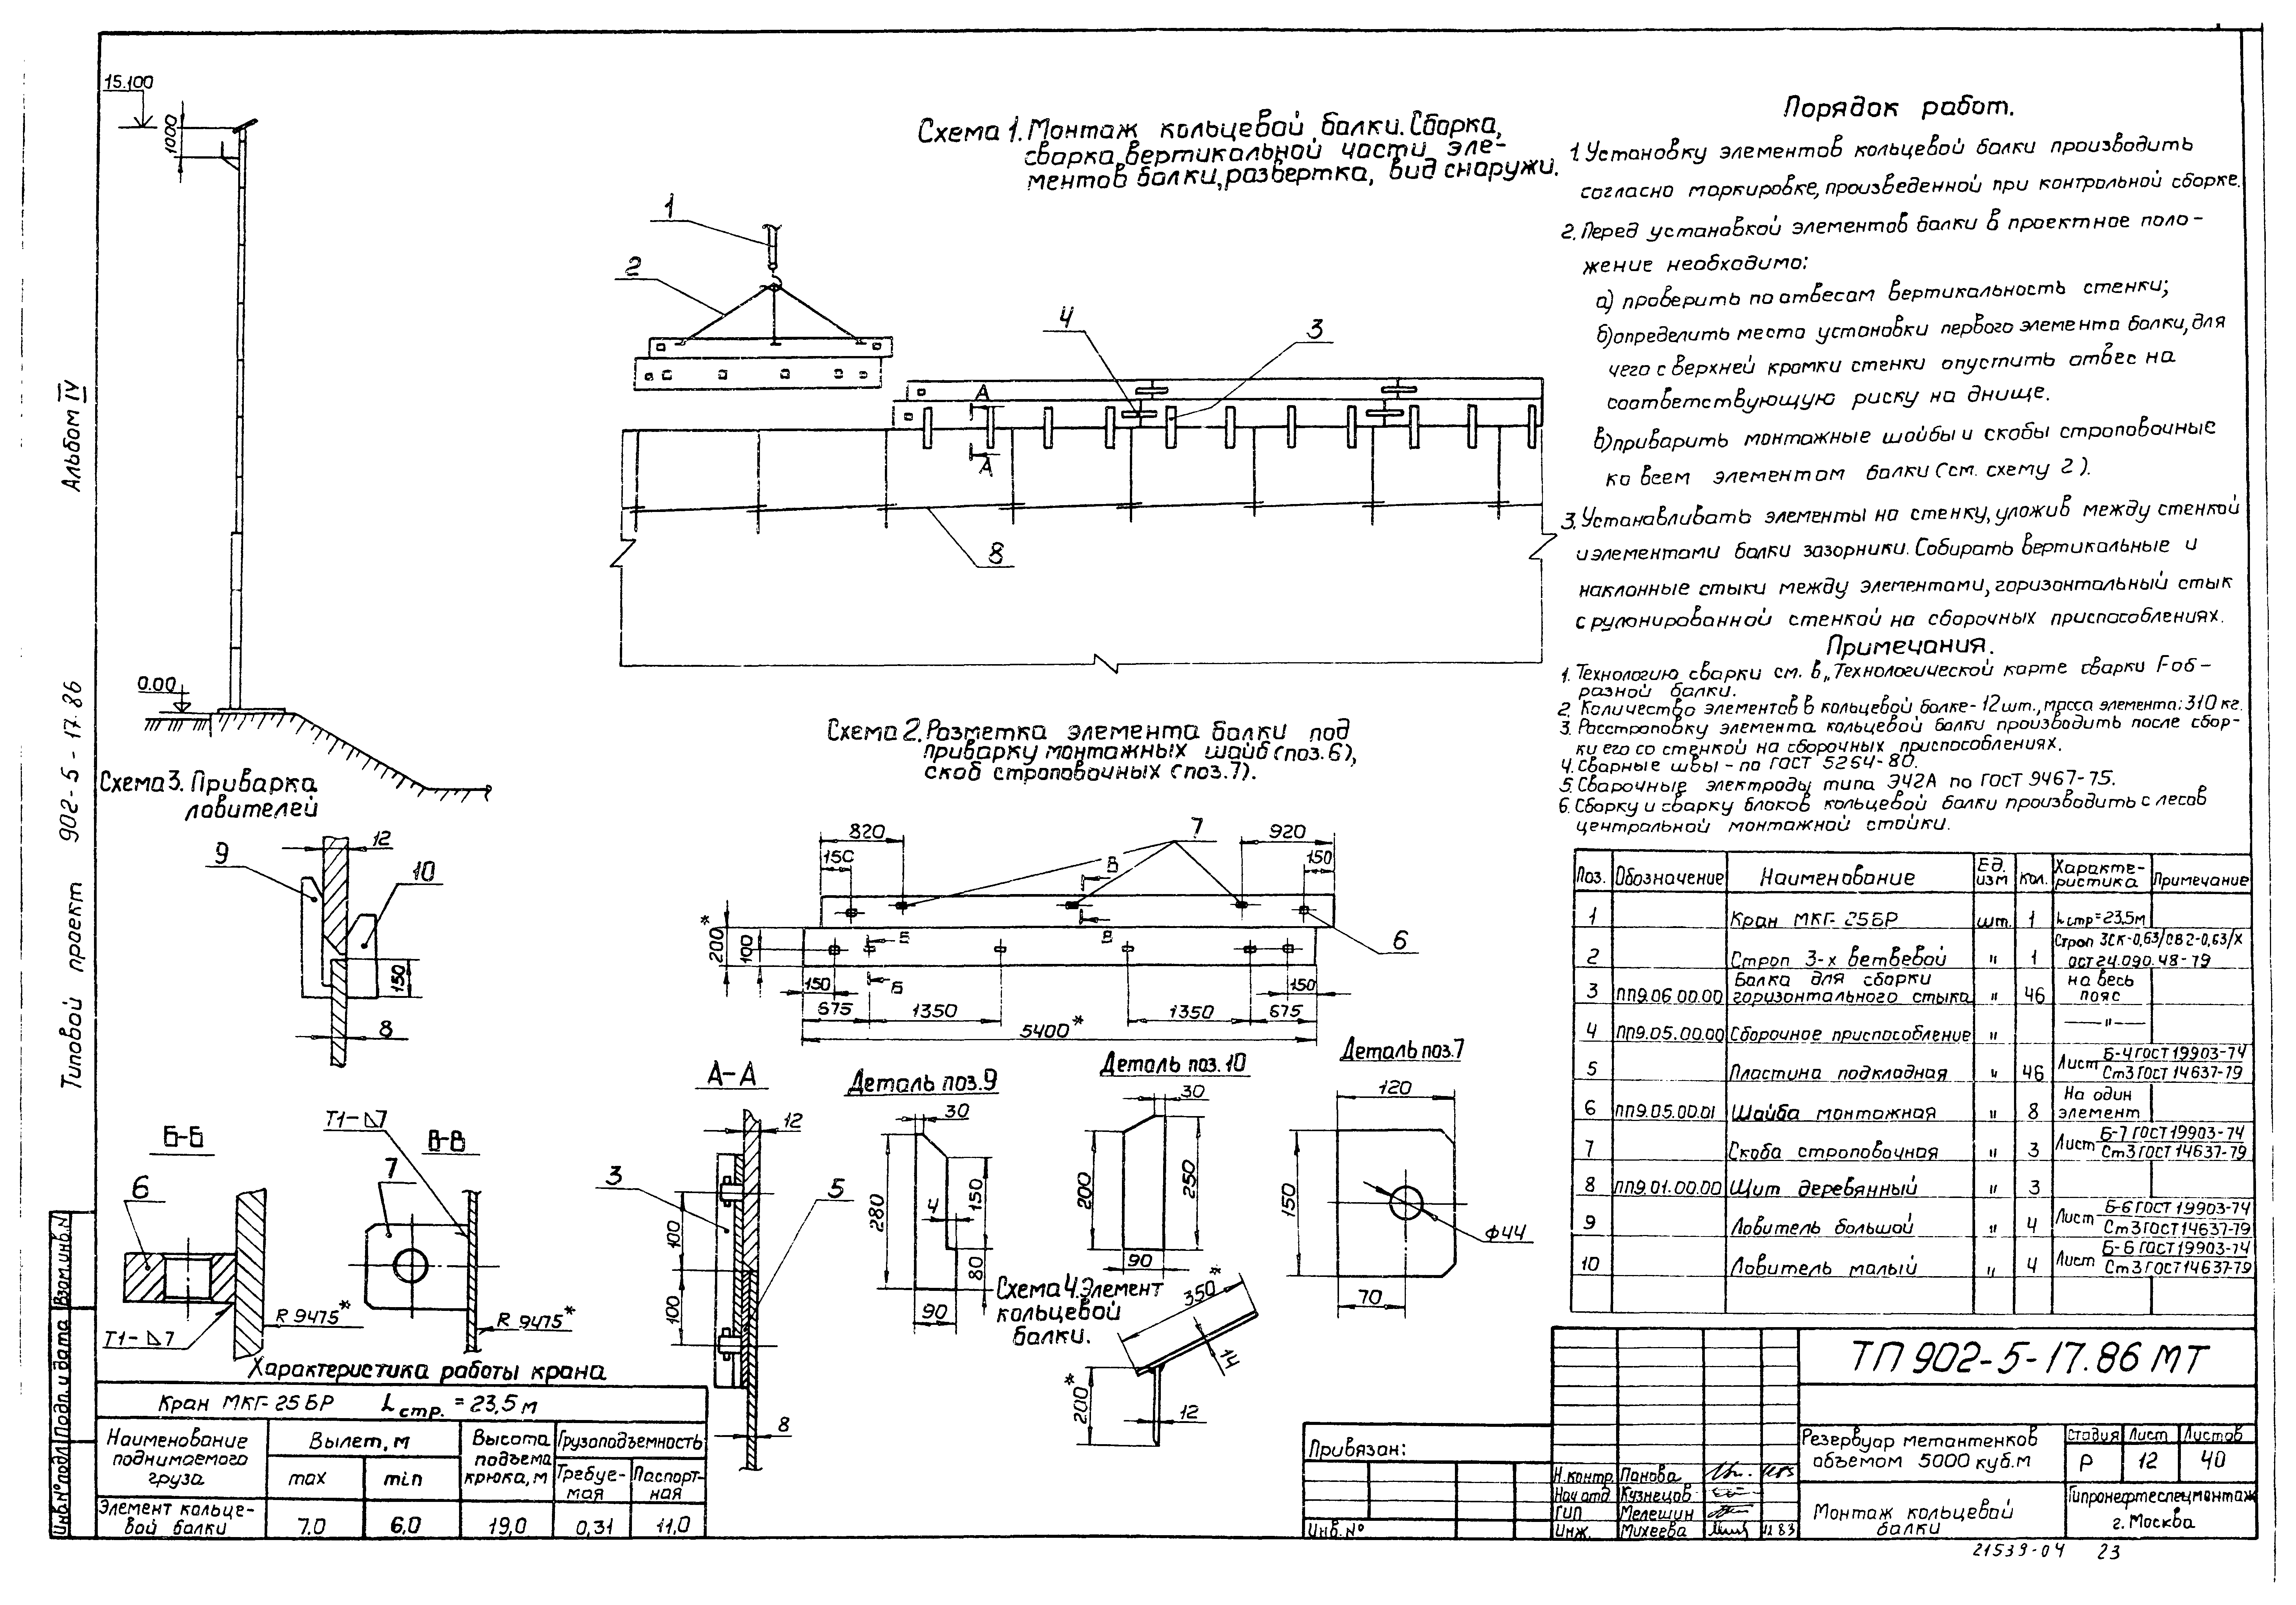 15.100
1000
0.00
Альбом IV
Типовой проект 902-5-17.86
Взам.инв.N
Подп.и дата
Инв.N°подл
Схема 1. Монтаж кольцевой балки. Сборка,
сварка вертикальной части эле-
ментов балки, развертка, вид снаружи.
1
2
4
3
А
А
8
Порядок работ.
1. Установку элементов кольцевой балки производить
согласно маркировке, произведенной при контрольной сборке.
2. Перед установкой элементов балки в проектное поло-
жение необходимо:
а) проверить по отвесам вертикальность стенки;
б) определить место установки первого элемента балки, для
чего с верхней кромки стенки опустить отвес на
соответствующую риску на днище.
в) приварить монтажные шайбы и скобы строповочные
ко всем элементам балки (см. схему 2).
3. Устанавливать элементы на стенку, уложив между стенкой
и элементами балки зазорники. Собирать вертикальные и
наклонные стыки между элементами, горизонтальный стык
с рулонированной стенкой на сборочных приспособлениях.
Примечания.
1. Технологию сварки см. в „Технологической карте сварки F-об-
разной балки.
2. Количество элементов в кольцевой балке - 12 шт., масса элемента: 310 кг.
3. Расстроповку элемента кольцевой балки производить после сбор-
ки его со стенкой на сборочных приспособлениях.
4. Сварные швы - по ГОСТ 5264-80.
5. Сварочные электроды типа Э42А по ГОСТ 9467-75.
6. Сборку и сварку блоков кольцевой балки производить с лесов
центральной монтажной стойки.
Схема 3. Приварка
ловителей
9
12
10
150
8
Схема 2. Разметка элемента балки под
приварку монтажных шайб (поз.6),
скоб строповочных (поз.7).
820
7
920
150
В
150
200*
100
Б
В
6
150
Б
150
675
1350
1350
675
5400*
Б-Б
6
Т1-⊿7
R 9475*
Т1-⊿7
В-В
7
R 9475*
А-А
12
3
5
100
100
8
Деталь поз.9
30
280
4
150
80
90
Деталь поз.10
30
200
250
90
Деталь поз.7
120
150
ф44
70
Схема 4. Элемент
кольцевой
балки.
350*
14
200*
12
Характеристика работы крана
Кран МКГ-25БР Lстр. = 23,5 м
Наименование поднимаемого груза
Вылет, м
max
min
Высота подъема крюка, м
Грузоподъемность
Требуе-мая
Паспорт-ная
Элемент кольце-
вой балки
7,0 6,0 19,0 0,31 11,0
Поз. Обозначение Наименование Ед. изм кол. Характе-ристика Примечание
1 Кран МКГ-25БР шт. 1 Lстр=23,5м
2 Строп 3-х ветвевой " 1 Строп 3СК-0,63/СВ2-0,63/Х ОСТ24.090.48-79
3 ПП9.06.00.00 Балка для сборки горизонтального стыка " 46 на весь пояс
4 ПП9.05.00.00 Сборочное приспособление " — " —
5 Пластина подкладная " 46 Лист Б-4 ГОСТ 19903-74 Ст3 ГОСТ 14637-79
6 ПП9.05.00.01 Шайба монтажная " 8 На один элемент
7 Скоба строповочная " 3 Лист Б-7 ГОСТ 19903-74 Ст3 ГОСТ 14637-79
8 ПП9.01.00.00 Щит деревянный " 3
9 Ловитель большой " 4 Лист Б-6 ГОСТ 19903-74 Ст3 ГОСТ 14637-79
10 Ловитель малый " 4 Лист Б-6 ГОСТ 19903-74 Ст3 ГОСТ 14637-79
ТП 902-5-17.86 МТ
Привязан:
Инв.N°
Н.контр. Панова
Нач отд Кузнецов
ГИП Мелешин
Инж. Михеева 12 83
Резервуар метантенков
объемом 5000 куб.м
Стадия Лист Листов
Р 12 40
Монтаж кольцевой
балки
Гипронефтеспецмонтаж
г. Москва
21539-04 23